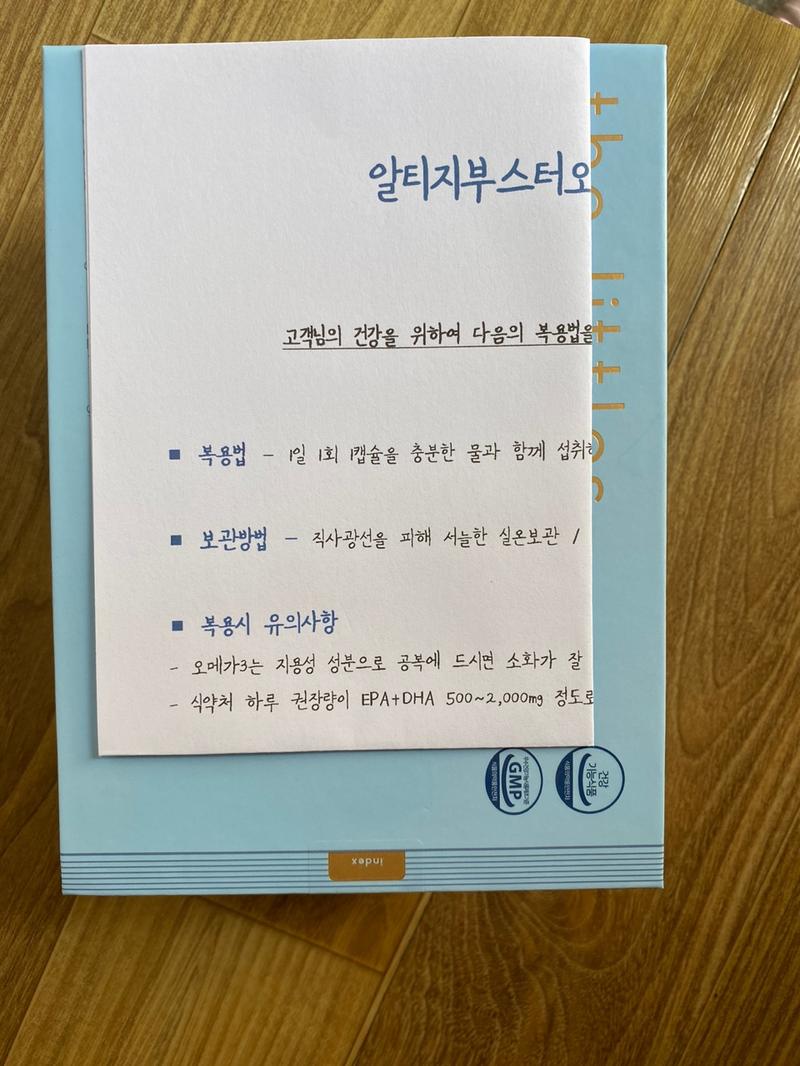 알티지부스터오
고객님의 건강을 위하여 다음의 복용법을
■ 복용법 - 1일 1회 1캡슐을 충분한 물과 함께 섭취하
■ 보관방법 - 직사광선을 피해 서늘한 실온보관 /
■ 복용시 유의사항
- 오메가3는 지용성 성분으로 공복에 드시면 소화가 잘
- 식약처 하루 권장량이 EPA+DHA 500~2,000mg 정도로
the littles
GMP
건강
기능식품
식품의약품안전처
index